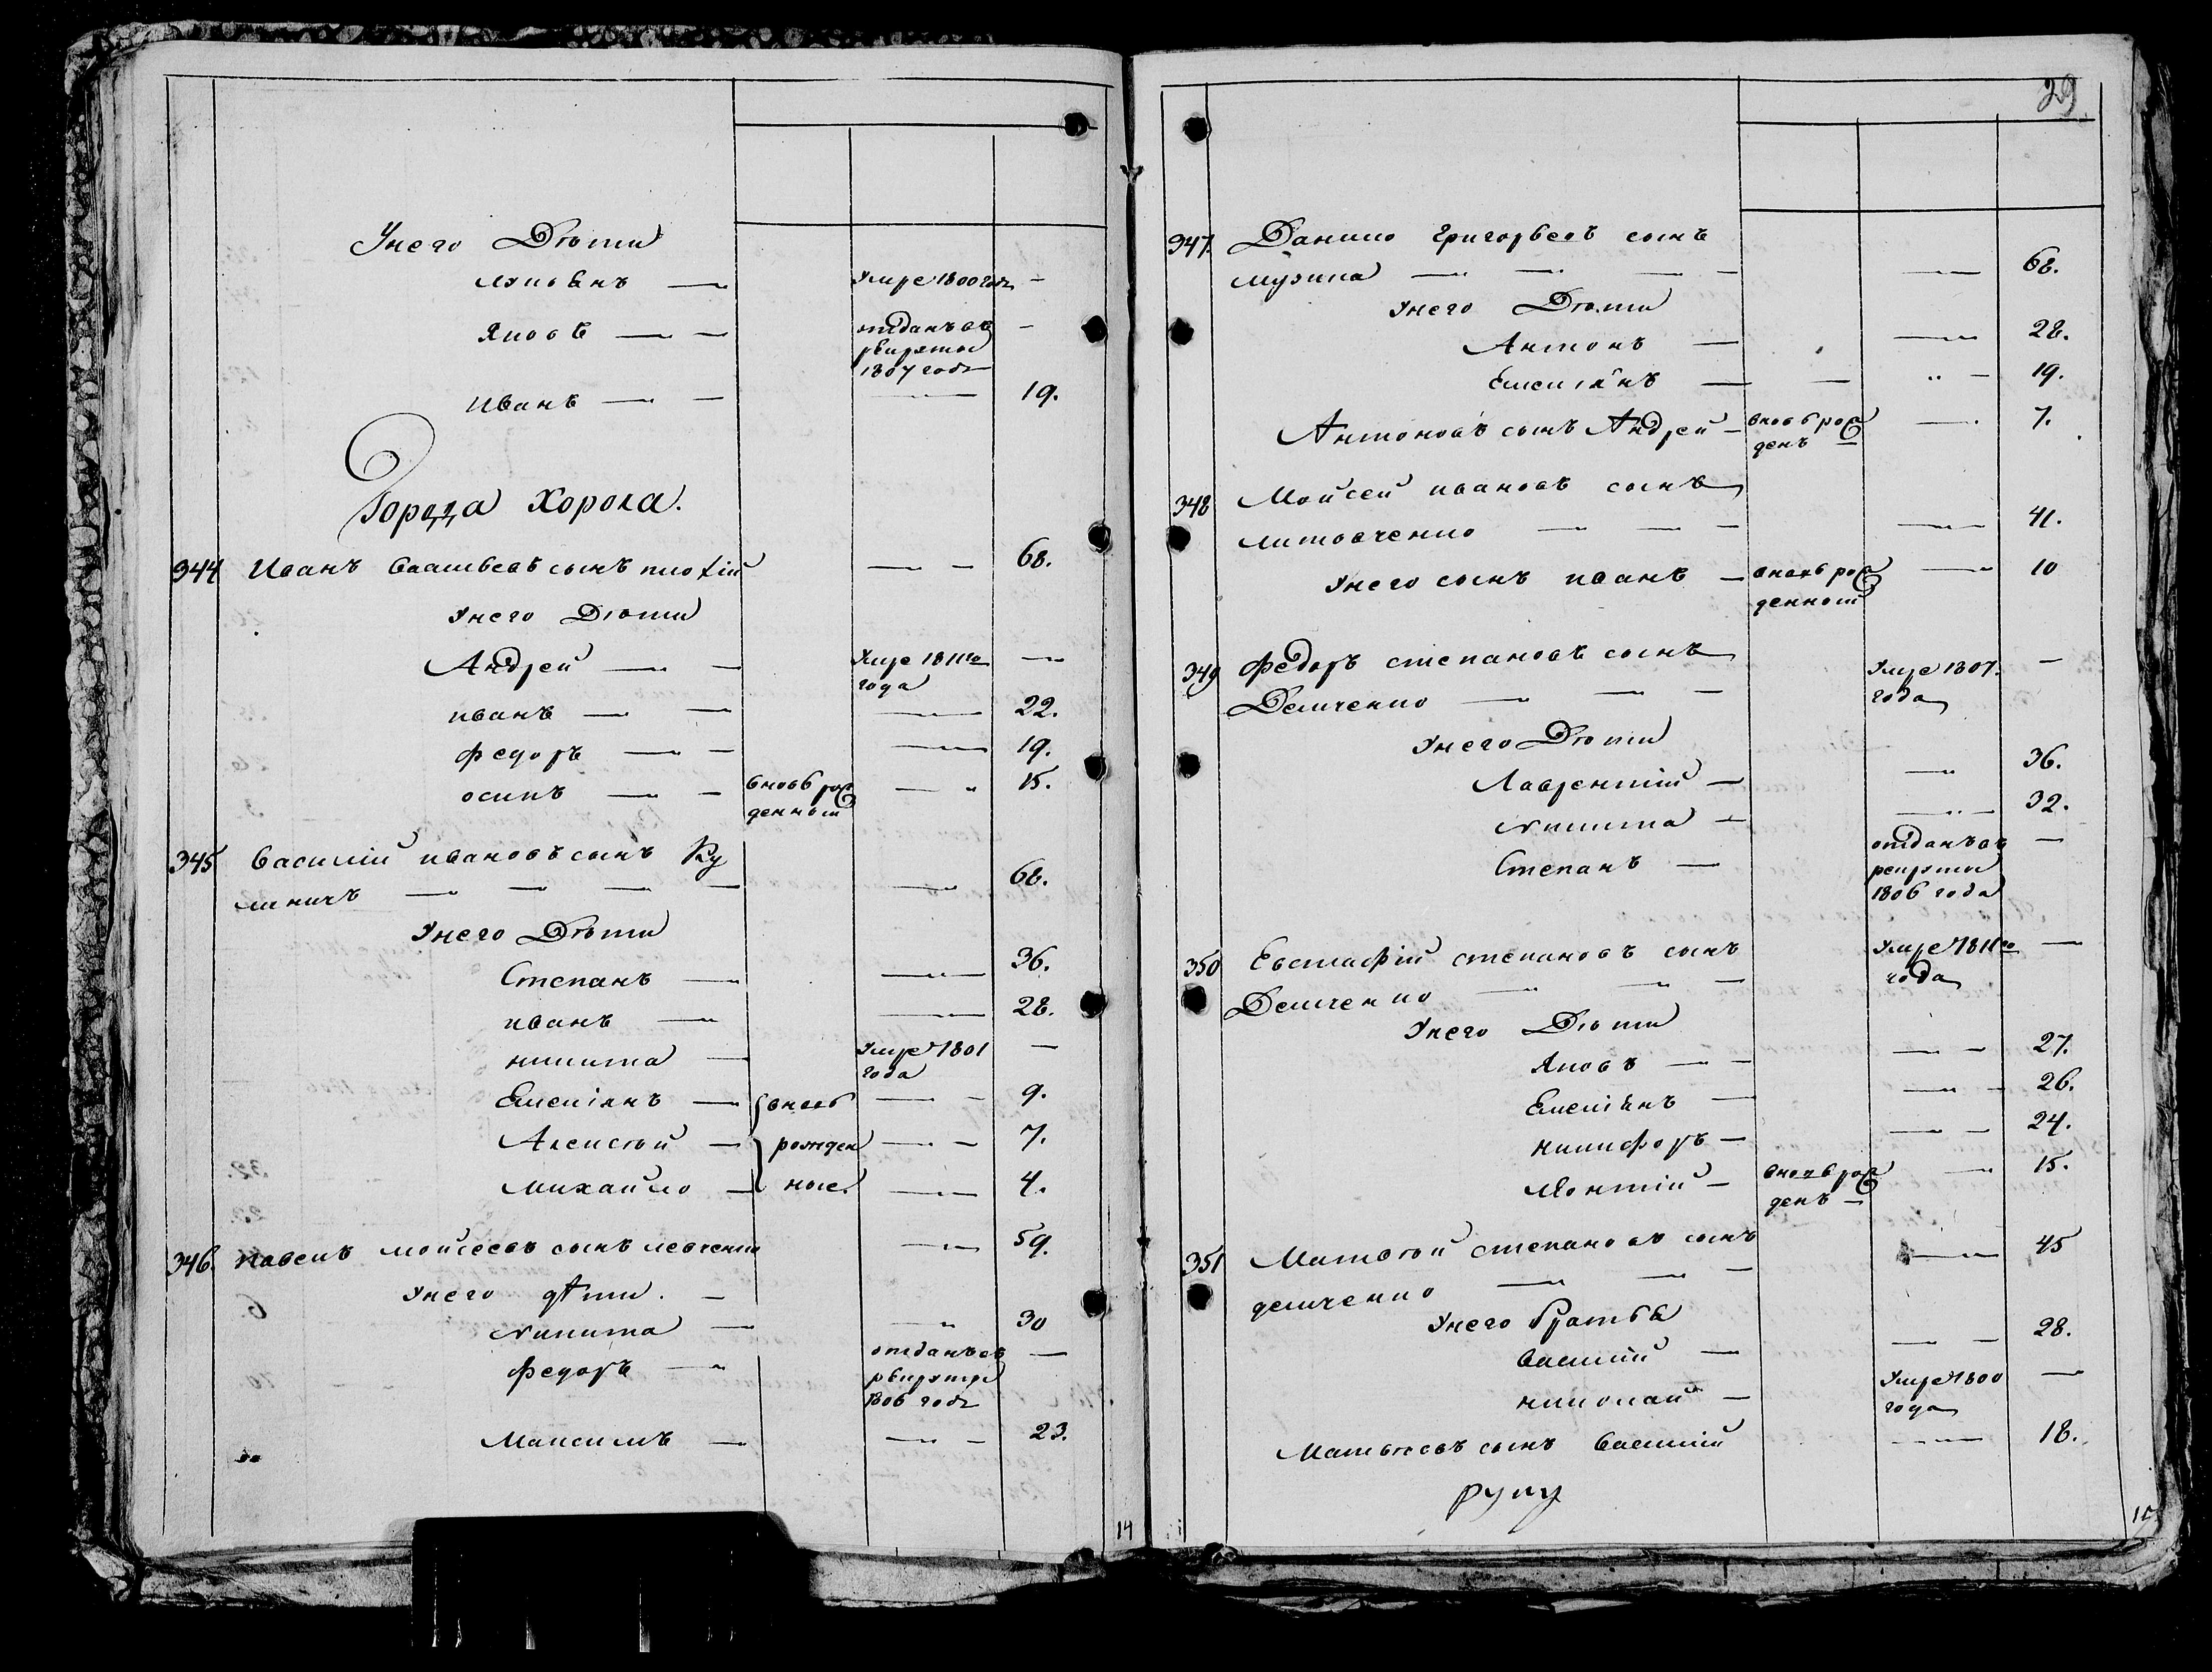 29.
Унего Дѣти
лукьянъ — Умре 1800 год. —
Яковъ — — отданъ въ —
рѣкруты
1807 годъ
Иванъ — — — 19.
Города Хорола.
344 Иванъ Васильевъ сынъ — — 68.
Унего Дѣти
Андрей — — Умре 1811го —
года
иванъ — — — 22.
федоръ — — — 19.
осипъ — — вновь рож — 15.
денной
345 Василій ивановъ сынъ Ку
линичъ — — — — — 68.
Унего Дѣти
Степанъ — — 36.
иванъ — — 28.
никита — Умре 1801 —
года
Емеліянъ — вновь — — 9.
Алексѣй — рожден — — 7.
михайло — ные. — — 4.
346. павелъ мойсеевъ сынъ левченко — 59.
Унего дѣти. —
никита — — 30
федоръ — отданъ въ —
рѣкруты
1806 годъ
Максимъ — — — 23.
14
347. Данило григорьевъ сынъ
музыка — — — — — 68.
Унего Дѣти
Антонъ — — 28.
Емельянъ — — — 19.
Антоновъ сынъ Андрей — вновь рож — 7.
денъ —
348 Мойсей ивановъ сынъ
литовченко — — — — 41.
Унего сынъ иванъ — вновь рож — 10
денной
349 федоръ степановъ сынъ Умре 1807. —
Демченко — — — года
Унего Дѣти
Лаврентій — — 36.
никита — — 32.
Степанъ — отданъ въ —
рекруты
1806 года
350 Евстафій степановъ сынъ Умре 1811го —
Демченко — — — года
Унего Дѣти
Яковъ — — — — 27.
Емельянъ — — — 26.
никифоръ — — — 24.
леонтій — вновь рож — 15.
денъ —
351 Матвѣй степановъ сынъ — 45
демченко — — —
Унего братья
василій — — — 28.
николай — Умре 1800 —
года
Матвѣевъ сынъ василій — 18.
руку